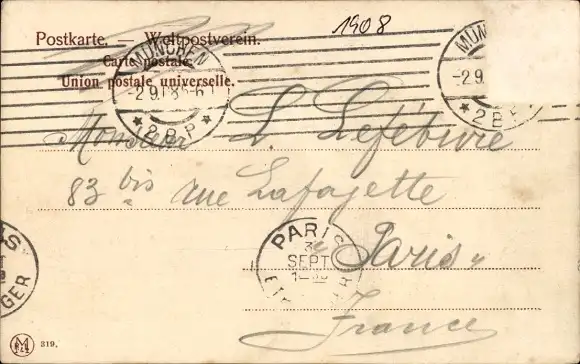 1908
Postkarte. — Weltpostverein.
Carte postale.
Union postale universelle.
MÜNCHEN
2 B.P
MÜN
-2.9.
2 B
Monsieur L. Lefébure
83 bis rue Lafayette
Paris
France
PARIS
3
SEPT
GER
319.